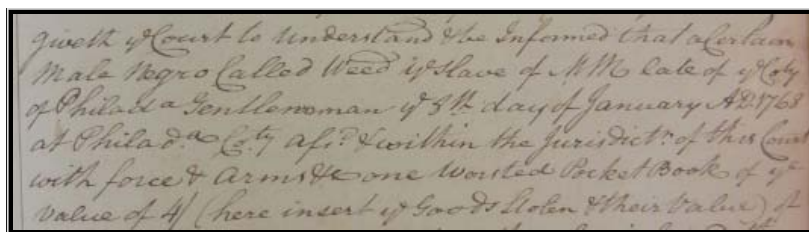 giveth yᵉ Court to Understand & be Informed that a Certain
Male Negro Called Weed yᵉ Slave of MM late of yᵉ Coty
of Philada Gentlewoman yᵉ 8th day of January A.D. 1768
at Philada Coty afsd & within the Jurisdictn of this Court
with force & Arms &c one Worsted Pocket Book of yᵉ
Value of 4/ (here insert yᵉ Goods Stolen & their Value) of